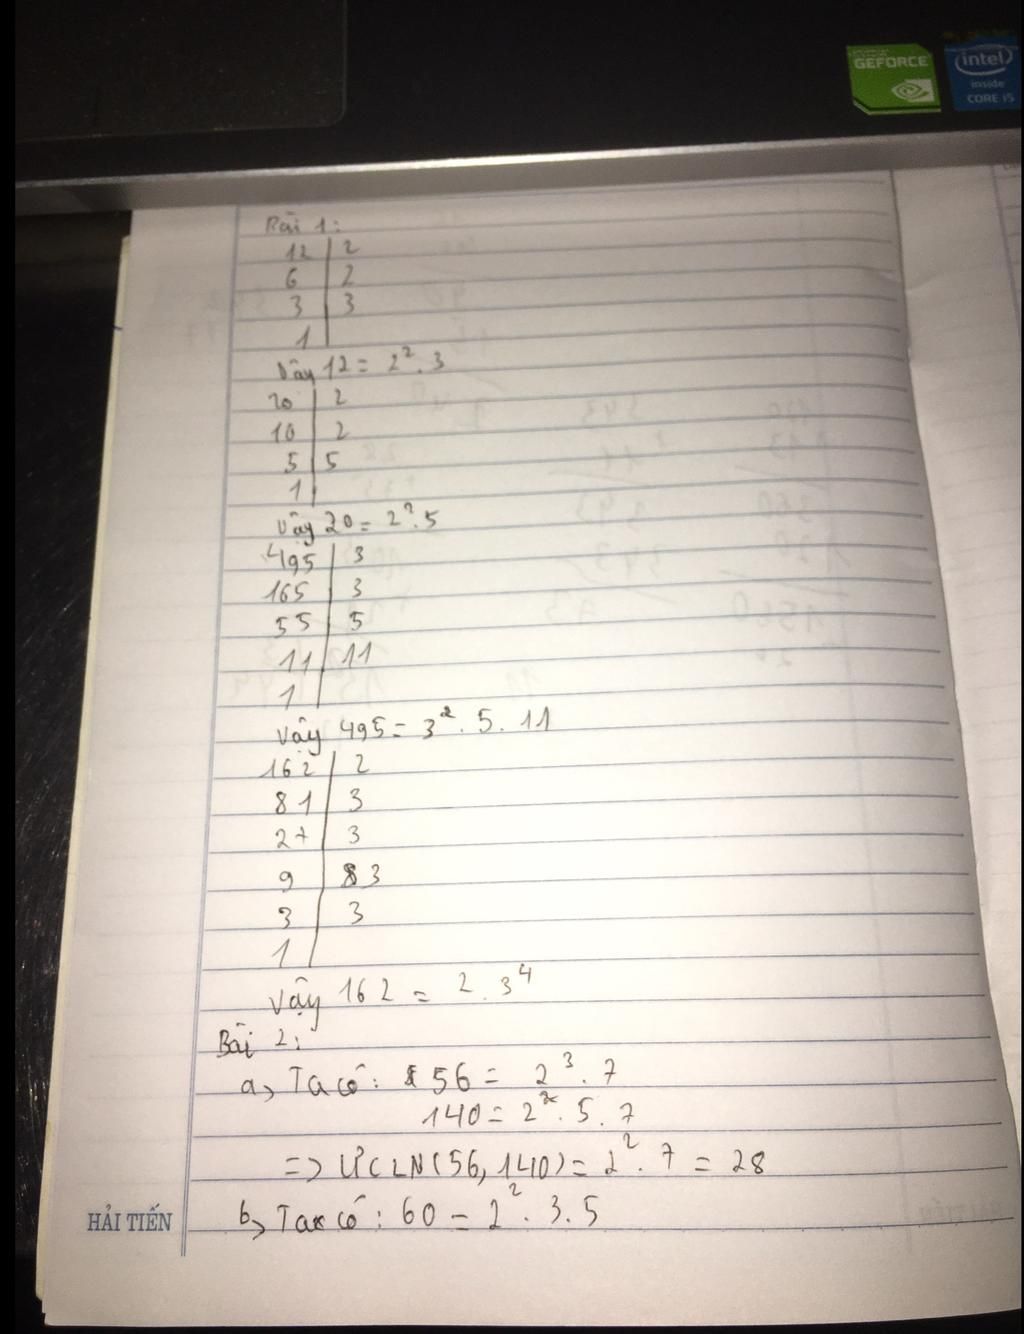 GEFORCE
intel
inside
CORE i5
Bài 1:
12 | 2
6 | 2
3 | 3
1 |
Vậy 12 = 2². 3
20 | 2
10 | 2
5 | 5
1 |
Vậy 20 = 2². 5
495 | 3
165 | 3
55 | 5
11 | 11
1 |
Vậy 495 = 3². 5. 11
162 | 2
81 | 3
27 | 3
9 | 3
3 | 3
1 |
Vậy 162 = 2. 3⁴
Bài 2:
a, Ta có: 56 = 2³. 7
140 = 2². 5. 7
=> ƯCLN(56, 140) = 2². 7 = 28
b, Ta có: 60 = 2². 3. 5
HẢI TIẾN